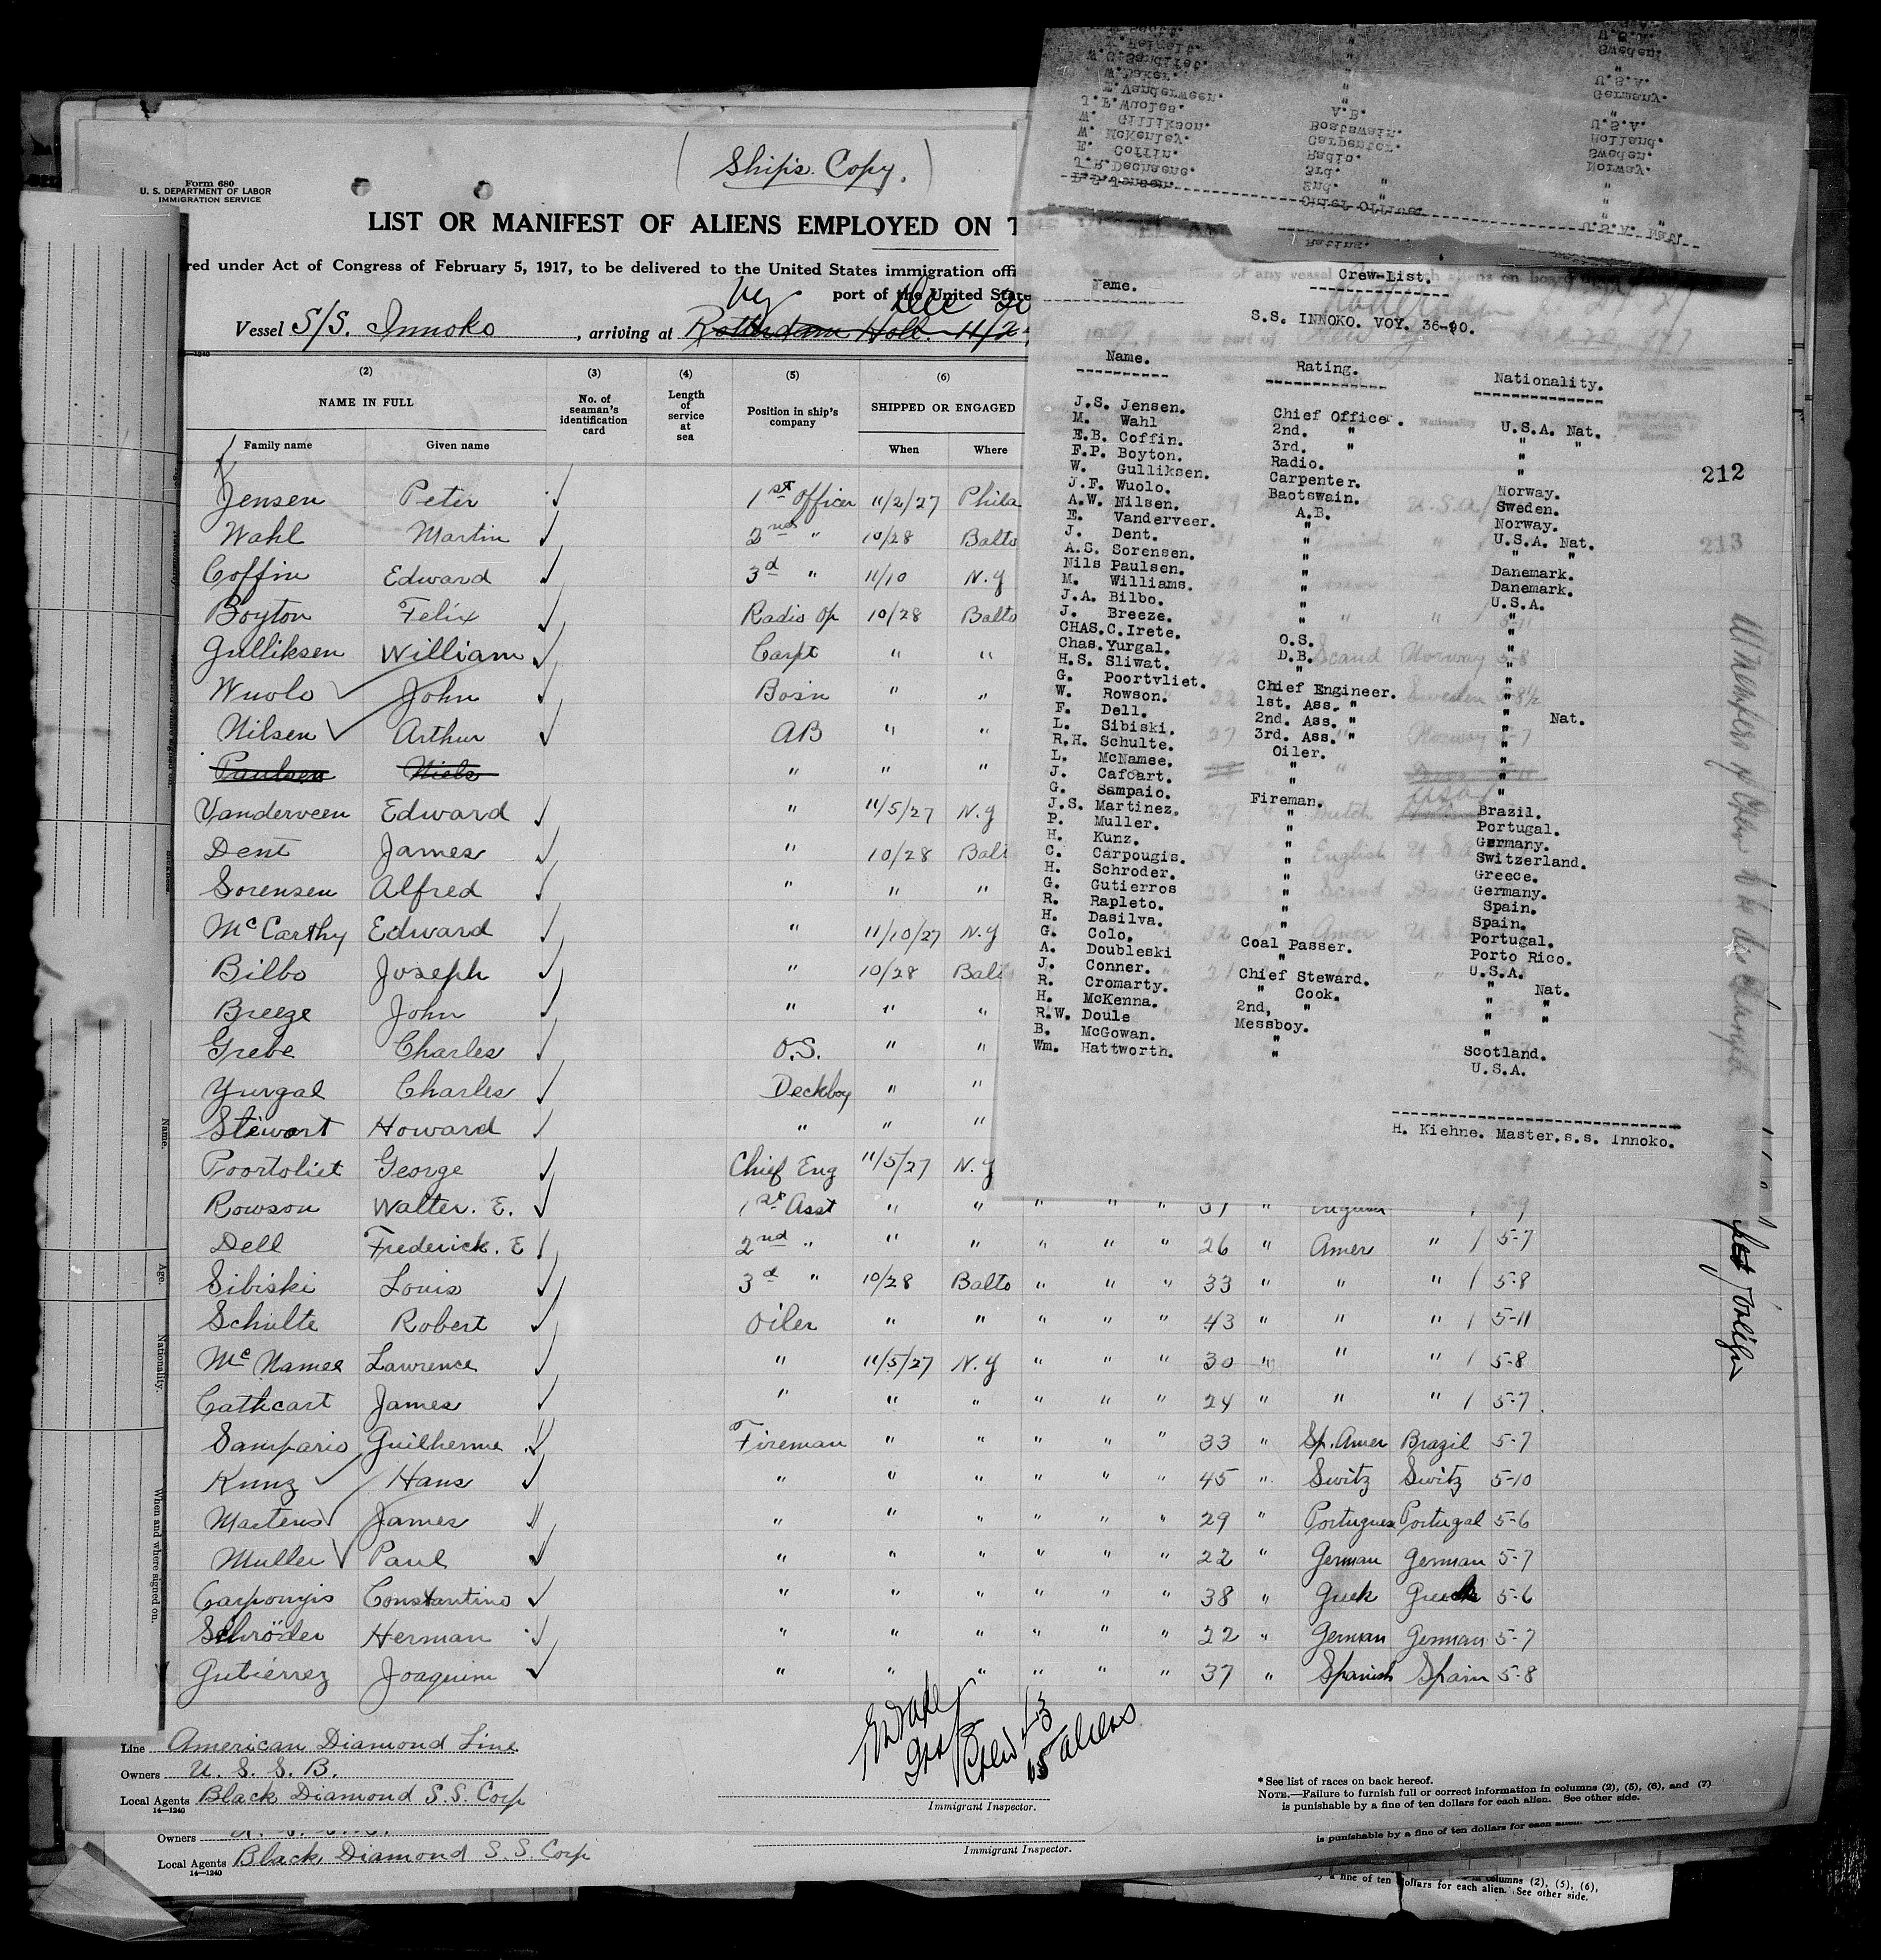 ( Ship's Copy. )
Form 680
U. S. DEPARTMENT OF LABOR
IMMIGRATION SERVICE
LIST OR MANIFEST OF ALIENS EMPLOYED ON T
red under Act of Congress of February 5, 1917, to be delivered to the United States immigration offi
port of the United State
Ny Dec 20
Vessel S/S. Innoko, arriving at Rotterdam Holl. 11/2
(2) (3) (4) (5) (6)
NAME IN FULL No. of seaman's identification card Length of service at sea Position in ship's company SHIPPED OR ENGAGED
Family name Given name When Where
Jensen Peter 1st Officer 11/2/27 Phila
Wahl Martin 2nd " 10/28 Balto
Coffin Edward 3d " 11/10 N.Y
Boyton Felix Radio Op 10/28 Balto
Gulliksen William Carpt " "
Wuolo John Bosn " "
Nilsen Arthur AB " "
Paulsen Niels " " "
Vanderveen Edward " 11/5/27 N.Y
Dent James " 10/28 Balt
Sorensen Alfred " " "
McCarthy Edward " 11/10/27 N.Y
Bilbo Joseph " 10/28 Balt
Breeze John " " "
Grebe Charles O.S. " "
Yurgal Charles Deckboy " "
Stewart Howard " " "
Poortvliet George Chief Eng 11/5/27 N.Y
Rowson Walter. E. 1st Asst " " " " " 37 " English " / 5-9
Dell Frederick. E 2nd " " " " " " 26 " Amer " / 5-7
Sibiski Louis 3d " 10/28 Balto " " " 33 " " " / 5-8
Schulte Robert Oiler " " " " " 43 " " " / 5-11
McNamee Lawrence " 11/5/27 N.Y " " " 30 " " " / 5-8
Cathcart James " " " " " " 24 " " " / 5-7
Sampario Guilherme Fireman " " " " " 33 " Sp. Amer Brazil 5-7
Kunz Hans " " " " " " 45 " Switz Switz 5-10
Martens James " " " " " " 29 " Portuguese Portugal 5-6
Muller Paul " " " " " " 22 " German German 5-7
Carpongis Constantino " " " " " " 38 " Greek Greek 5-6
Schröder Herman " " " " " " 22 " German German 5-7
Gutiérrez Joaquim " " " " " " 37 " Spanish Spain 5-8
Line American Diamond Line
Owners U. S. S. B.
Local Agents Black Diamond S.S. Corp
14—1240
Crew 43
aliens
Immigrant Inspector.
* See list of races on back hereof.
NOTE.—Failure to furnish full or correct information in columns (2), (5), (6), and (7)
is punishable by a fine of ten dollars for each alien. See other side.
Owners
Local Agents Black Diamond S.S. Corp
14—1240
Immigrant Inspector.
is punishable by a fine of ten dollars for each alien.
columns (2), (5), (6),
a fine of ten dollars for each alien. See other side.
Name.
Age.
Nationality.
When and where signed on.
K. Feigoit.
W.G.Sandifet.
W.Baker.
E.Vanderween.
J.F.Wuoles.
W. Gillikson.
W. McKenley.
E. Coffin.
J.R.Dechaene.
P.S.Jensen.
V.B.
Boatswain.
Carpenter.
Radio.
3rd. "
2nd. "
Chief Officer
Rating.
U.S.A.
Sweden.
"
U.S.A.
Germany.
"
U.S.A.
Holland.
Sweden.
Norway.
"
"
U.S.A. Nat.
Name.
Crew-List.
S.S. INNOKO. VOY. 36-90.
Name. Rating. Nationality.
J.S. Jensen. Chief Officer. U.S.A. Nat.
M. Wahl 2nd. " " "
E.B. Coffin. 3rd. " "
F.P. Boyton. Radio. "
W. Gulliksen. Carpenter. Norway.
J.F. Wuolo. Baotswain. Sweden.
A.W. Nilsen. A.B. Norway.
E. Vanderveer. " U.S.A. Nat.
J. Dent. " " "
A.S. Sorensen. " Danemark.
Nils Paulsen. " Danemark.
M. Williams. " U.S.A.
J.A. Bilbo. " "
J. Breeze. " "
CHAS.C.Irete. O.S. "
Chas.Yurgal. D.B. "
H.S. Sliwat. " "
G. Poortvliet. Chief Engineer. "
W. Rowson. 1st. Ass. " " Nat.
F. Dell. 2nd. Ass. " "
L. Sibiski. 3rd. Ass. " "
R.H. Schulte. Oiler. "
L. McNamee. " "
J. Cafcart. " "
G. Sampaio. Fireman. Brazil.
J.S. Martinez. " Portugal.
P. Muller. " Germany.
H. Kunz. " Switzerland.
C. Carpougis. " Greece.
H. Schroder. " Germany.
G. Gutierros " Spain.
R. Rapleto. " Spain.
H. Dasilva. " Portugal.
G. Colo. Coal Passer. Porto Rico.
A. Doubleski " U.S.A.
J. Conner. Chief Steward. " Nat.
R. Cromarty. " Cook. " "
H. McKenna. 2nd, " " "
R.W. Doule Messboy. "
B. McGowan. " Scotland.
Wm. Hattworth. " U.S.A.
H. Kiehne. Master.s.s. Innoko.
212
213
Members of Crew to be discharged